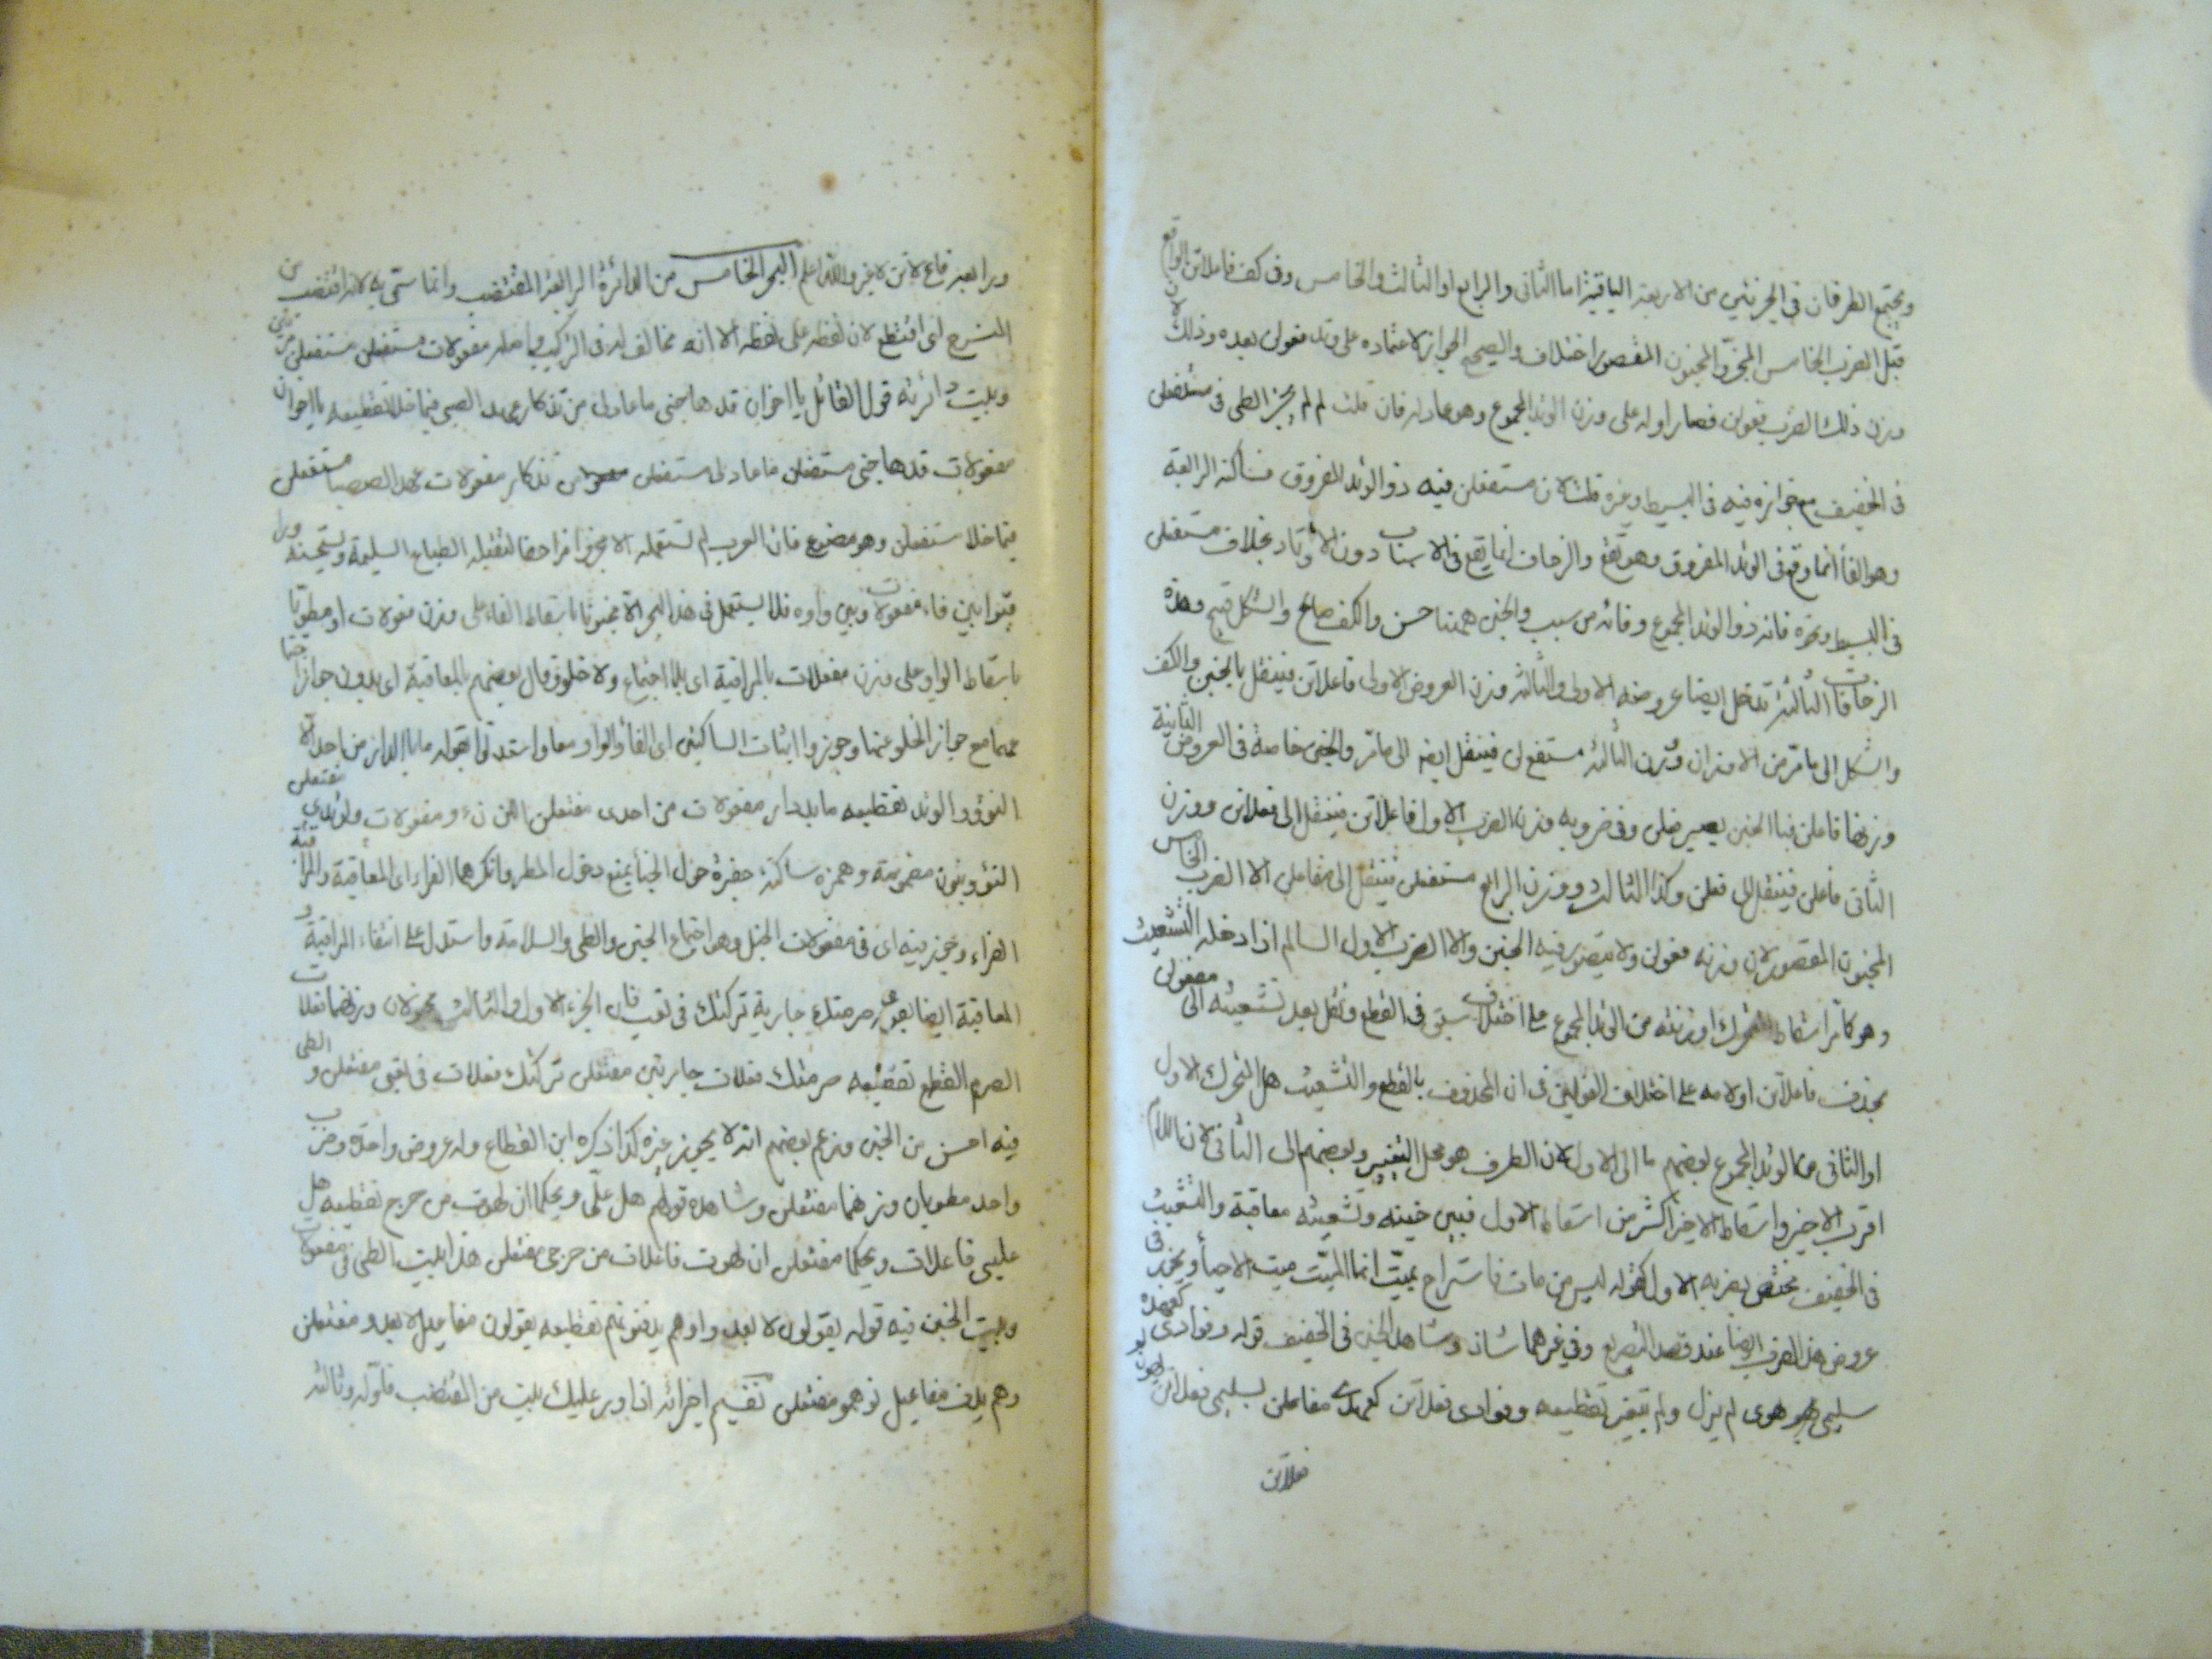 ويجتمع الطرفان في الجزئين من الاربعة الباقية اما الثاني والرابع او الثالث والخامس وفي كف فاعلاتن الواقع
قبل الضرب الخامس المجزو المخبون المقصور اختلاف والصحيح الجواز لاعتماده على وتد فعولن بعده وذلك لان
وزن ذلك الضرب فعولن فصار اوله على وزن الوتد المجموع وهو عادله فان قلت لم لم يجز الطي في مستفعلن
في الخفيف مع جوازه فيه في البسيط وغيره قلت لان مستفعلن فيه ذو الوتد المفروق فساكنه الرابعة
وهو الفأ انما وقع في الوتد المفروق وهو تفع والزحاف انما يقع في الاسباب دون الاوتاد بخلاف مستفعلن
في البسيط ونحوه فانه ذو الوتد المجموع وفائه من سبب والخبن ههنا حسن والكف صالح والشكل قبيح وهذه
الزحافات الثالثة تدخل ايضا عروضه الاولى والثالثة وزن العروض الاولى فاعلاتن فينقل بالخبن والكف
والشكل الى ما مر من الاوزان ووزن الثالثة مستفع لن فينقل ايضا الى ما مر والخبن خاصة في العروض الثانية
وزنها فاعلن فبا الخبن يصير فعلن وفي ضروبه وزن الضرب الاول فاعلاتن فينقل الى فعلاتن ووزن
الثاني فاعلن فينقل الى فعلن وكذا الثالث ووزن الرابع مستفعلن فينقل الى مفاعلن الا الضرب الخامس
المخبون المقصور لان وزنه فعولن ولا يتصور فيه الخبن والا الضرب الاول السالم اذا دخله التشعيث
وهو كما مر اسقاط المتحرك وزنته من الوتد المجموع على اختلاف سبق في القطع ونقل بعد تشعيثه الى مفعولن
بحذف فاعلاتن اولامه على اختلاف القولين في ان المحذوف بالقطع والتشعيث هل المتحرك الاول
او الثاني من الوتد المجموع بعضهم مال الى الاول لان الطرف هو محل التغيير وبعضهم الى الثاني لان اللام
اقرب الاخير واسقاط الاخير اكثر من اسقاط الاول فبين خبنه وتشعيثه معاقبة والتشعيث
في الخفيف مختص بضربه الاول كقوله ليس من مات فاستراح بميت انما الميت ميت الاحيأ ويجوز في
عروض هذا الضرب ايضا عند قصد التصريع وفي غيرهما شاذ وشاهد الخبن في الخفيف قوله وفوادي كعهده
سليمي بهوى لم يزل ولم يتغير تقطيعه وفوادي فعلاتن كعهدي مفاعلن لسليمي فعلاتن بهون
فعلاتن
ورابعه فاع لاتن لا غير والله اعلم البحر الخامس من الدائرة الرابعة المقتضب وانما سمي به لانه اقتضب من
المنسرح اي اقتطع لان لفظه على لفظه الا انه مخالف له في التركيب واصله مفعولات مستفعلن مستفعلن مرتين
وبيت دائرته قول القائل يا اخوان قد هاجني ما عادلي من تذكار عهد الصبى فيما خلا تقطيعه يا اخوان
مفعولات قد هاجني مستفعلن ما عادلي مستفعلن من تذكار مفعولات عهد الصبا مستفعلن
فيما خلا مستفعلن وهو مصنوع فان العرب لم تستعمله الا مجزوا مزاحفا لتثقيله الطباع السليمة وتستهجنه
فتوابين فاء مفعولات وبين واوه فلا يستعمل في هذا البحر الا مخبونا باسقاط الفاء على وزن فعولات او مطويا
باسقاط الواو على وزن مفعلات بالمراقبة اي بلا اجتماع ولا خلو وقال بعضهم بالمعاقبة اي بدون جواز اجتما
عهما مع جواز الخلو عنها وجوزوا اثبات الساكنين اي الفأ والواو معا واستدلوا بقوله ما بالدار من احد الا
النؤي والوتد تقطيعه ما بلدار مفعولات من احدى مفتعلن اللن نؤ ومفعولات ولوتدي مفتعلن
النؤي بنون مضمومة وهمزه ساكنة حفرة حول الخبأ يمنع دخول المطر وانكرهما الفراء اي المعاقبة والمراقبة
الفراء وجوز فيه اي في مفعولات الخبل وهو اجتماع الخبن والطي والسلامة واستدل على انتفاء المراقبة و
المعاقبة ايضا بقوله صرمتك جارية تركتك في تعب فان الجزء الاول والثالث مخبولان وزنهما فعلات
الصرم القطع تقطيعه صرمتك فعلات جاريتن مفتعلن تركتك فعلات في تعبي مفتعلن والطي
فيه احسن من الخبن وزعم بعضهم انه لا يجوز غيره كذا ذكره ابن القطاع وله عروض واحدة وضرب
واحد مطويان وزنهما مفتعلن وشاهده قولهم هل علي ويحكما ان لهوت من حرج تقطيعه هل
عليي فاعلات ويحكما مفتعلن ان لهوت فاعلات من حرجي مفتعلن هذا بيت الطي في مفعولات
وبيت الخبن فيه قوله يقولون لا بعدوا وهم يدفنونهم تقطيعه يقولون مفاعيل لا بعدو مفتعلن
وهم يدف مفاعيل نونهمو مفتعلن تقسيم اجزائه اذا ورد عليك بيت من المقتضب فاوله وثالثه